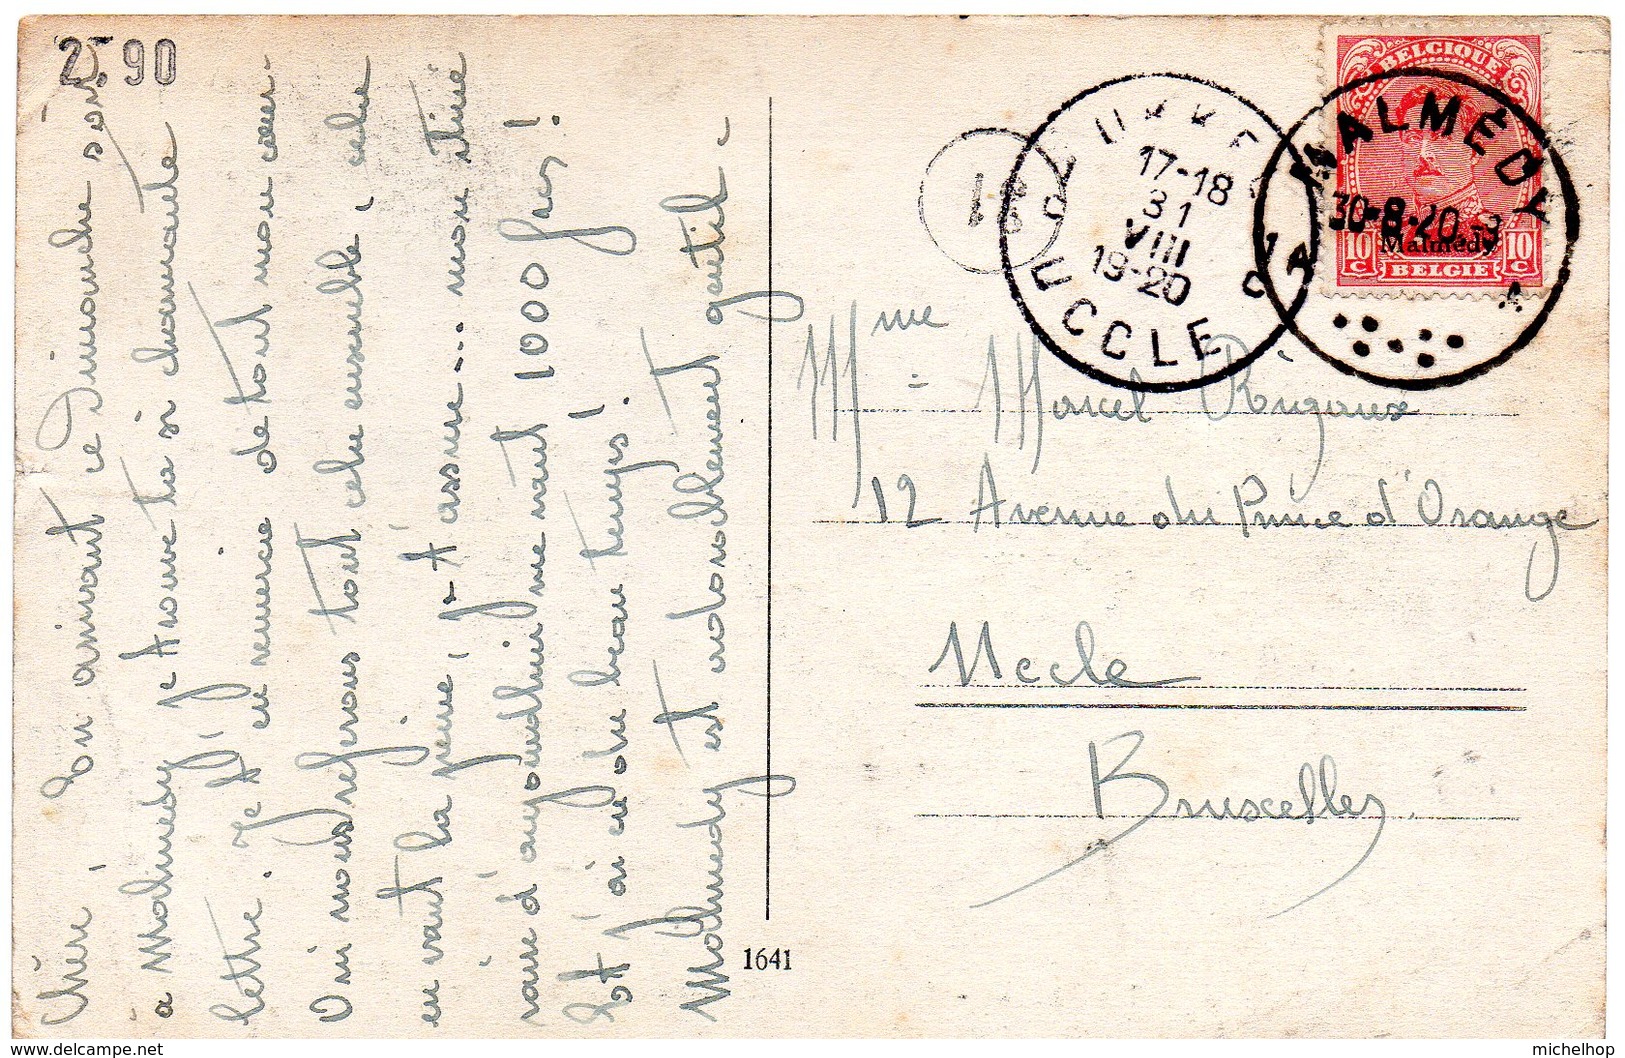 2F90
Chérie, En arrivant ce Dimanche soir
à Malmedy je trouve ta si charmante
lettre. Je t'en remercie de tout mon cœur.
Oui nous referons tout cela ensemble, cela
en vaut la peine, je t'assure... mon
d'aujourd'hui me vaut 1000 frcs!
Et j'ai eu du beau temps!
Malmedy est adorablement gentil.
1641
UCCLE
17-18
31
VIII
19-20
UCCLE
MALMÉDY
30-8-20
BELGIQUE
Malmédy
10 c BELGIE 10 c
Mme Marcel Rigaux
12 Avenue du Prince d'Orange
Uccle
Bruxelles.
delcampe.net
michelhop